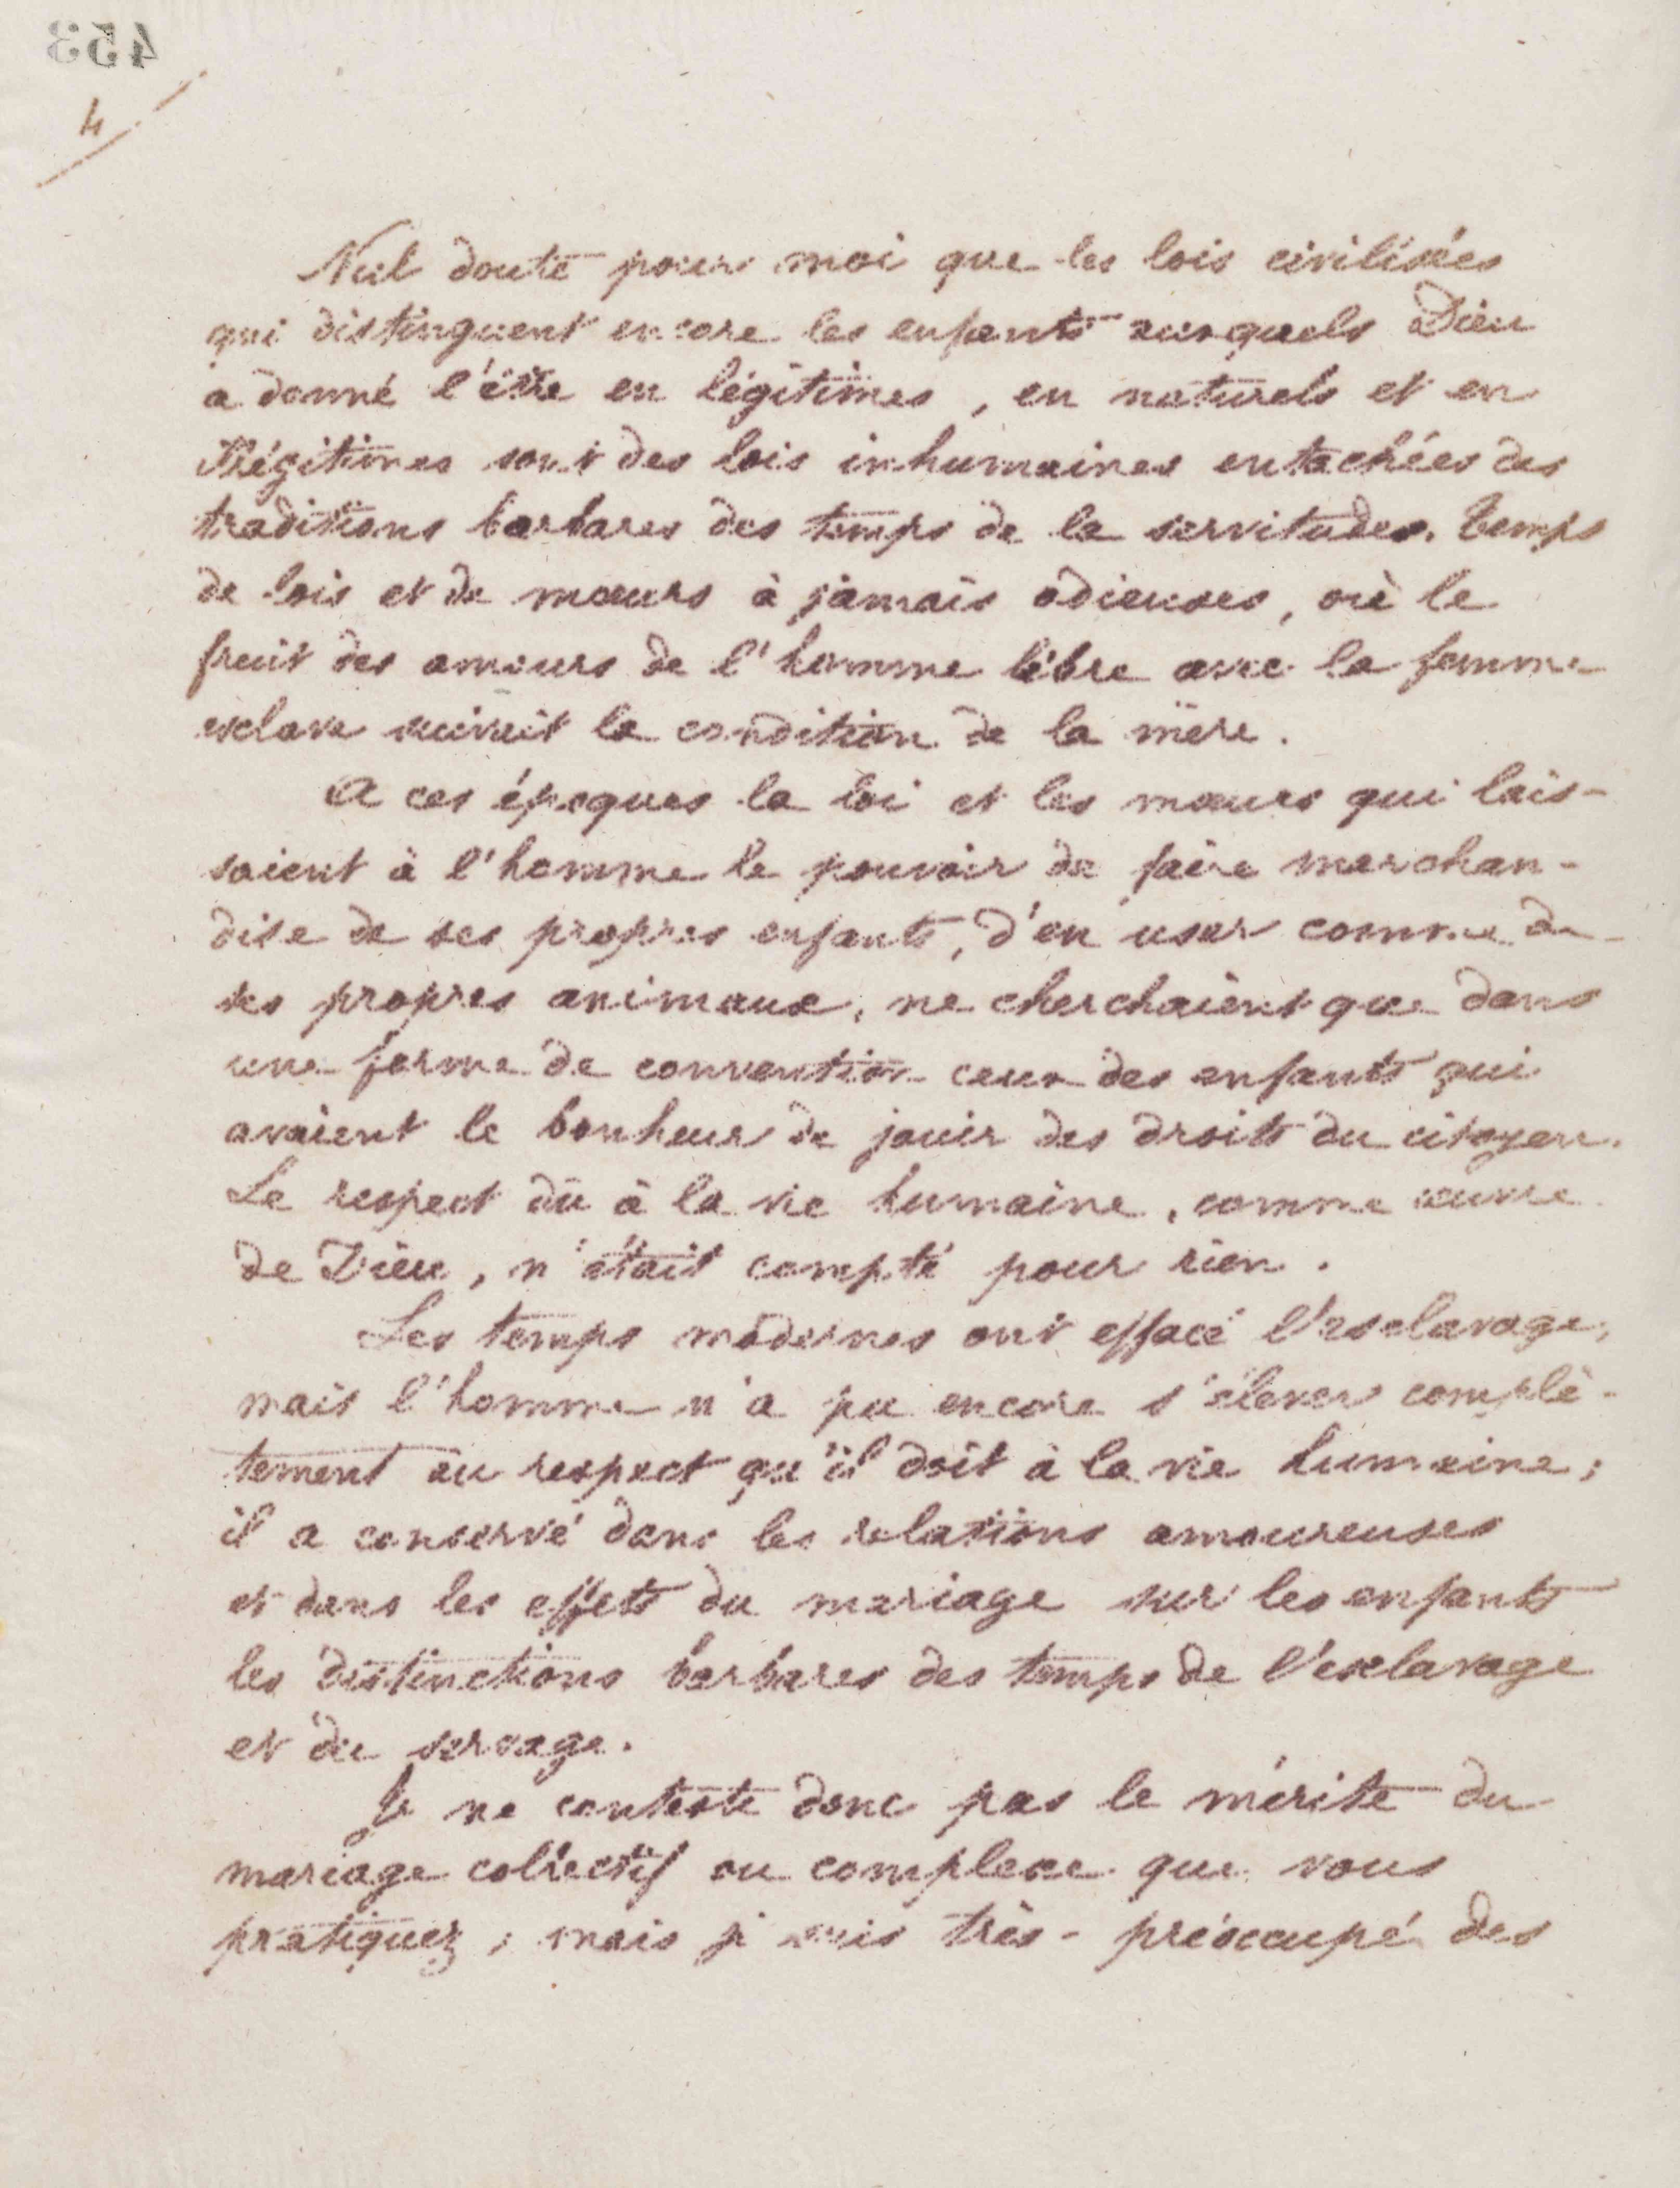 453
4
Nul doute pour moi que les lois civilisées
qui distinguent encore les enfants auxquels Dieu
a donné l'être en légitimes, en naturels et en
illégitimes sont des lois inhumaines entachées des
traditions barbares des temps de la servitude. temps
de lois et de mœurs à jamais odieuses, où le
fruit des amours de l'homme libre avec la femme
esclave suivait la condition de la mère.
A ces époques la loi et les mœurs qui lais-
saient à l'homme le pouvoir de faire marchan-
dise de ses propres enfants, d'en user comme de
ses propres animaux, ne cherchaient que dans
une forme de convention ceux des enfants qui
avaient le bonheur de jouir des droits du citoyen.
Le respect dû à la vie humaine, comme œuvre
de Dieu, n'était compté pour rien.
Les temps modernes ont effacé l'esclavage,
mais l'homme n'a pu encore s'élever complè-
tement au respect qu'il doit à la vie humaine;
il a conservé dans les relations amoureuses
et dans les effets du mariage sur les enfants
les distinctions barbares des temps de l'esclavage
et du servage.
Je ne conteste donc pas le mérite du
mariage collectif ou complexe que vous
pratiquez; mais je suis très-préoccupé des